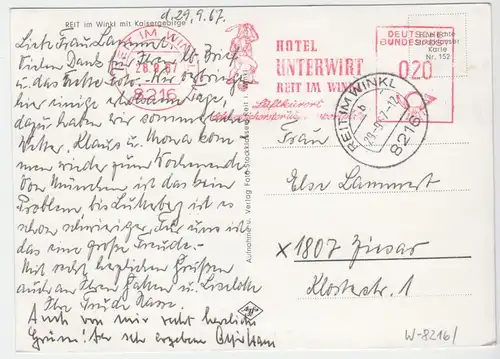 REIT im Winkl mit Kaisergebirge
d. 29.9.67.
Liebe Frau Lammert,
Vielen Dank für Ihren Brief
und das Foto. Wir verbringen
hier einige Tage,
dazu haben wir
Wetter, Klaus u. Mona kom-
men wieder zum Wochenende
Von München ist das kein
Problem, bis ist es
schon schwieriger. Für uns ist
das eine große Freude.
Mit sehr herzlichen Grüßen
auch an Ihren Gatten u. Liselotte
Ihre
Auch von mir recht herzliche
Grüße! Ihr sehr ergebener
REIT IM WINKL
28.9.67
8216
HOTEL
UNTERWIRT
REIT IM WINKL
Luftkurort
DEUTSCHE
BUNDESPOST
020
Eine echte
Stockklauser
Karte
Nr. 152
REIT IM WINKL
b
29.9.67-12
8216
Aufnahme u. Verlag Foto-Stockklauser, Reit i. Winkl
Frau
Else Lammert
X 1807 Ziesar
Klosterstr. 1
W-8216/